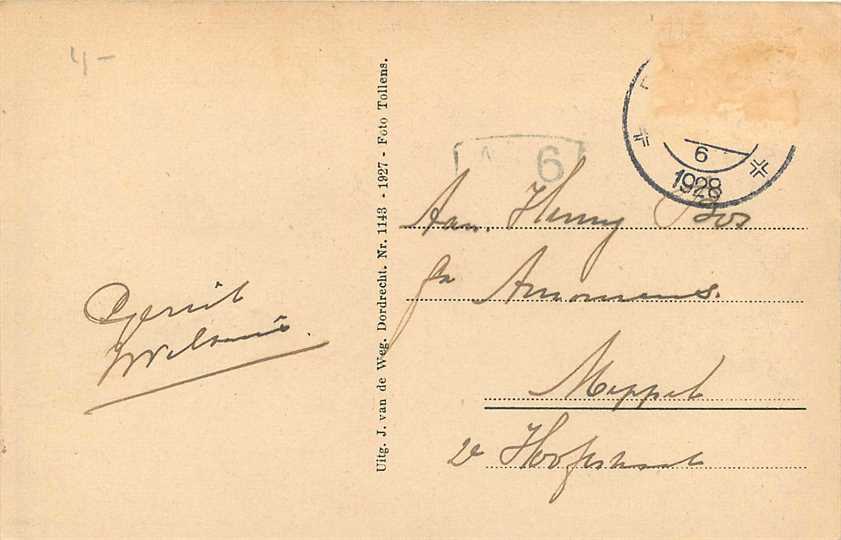 4-
Gerrit
Uitg. J. van de Weg. Dordrecht. Nr. 1143 - 1927 - Foto Tollens.
6
6
1928
Aan, Henny Bos
Meppel
2e Hoofstraat